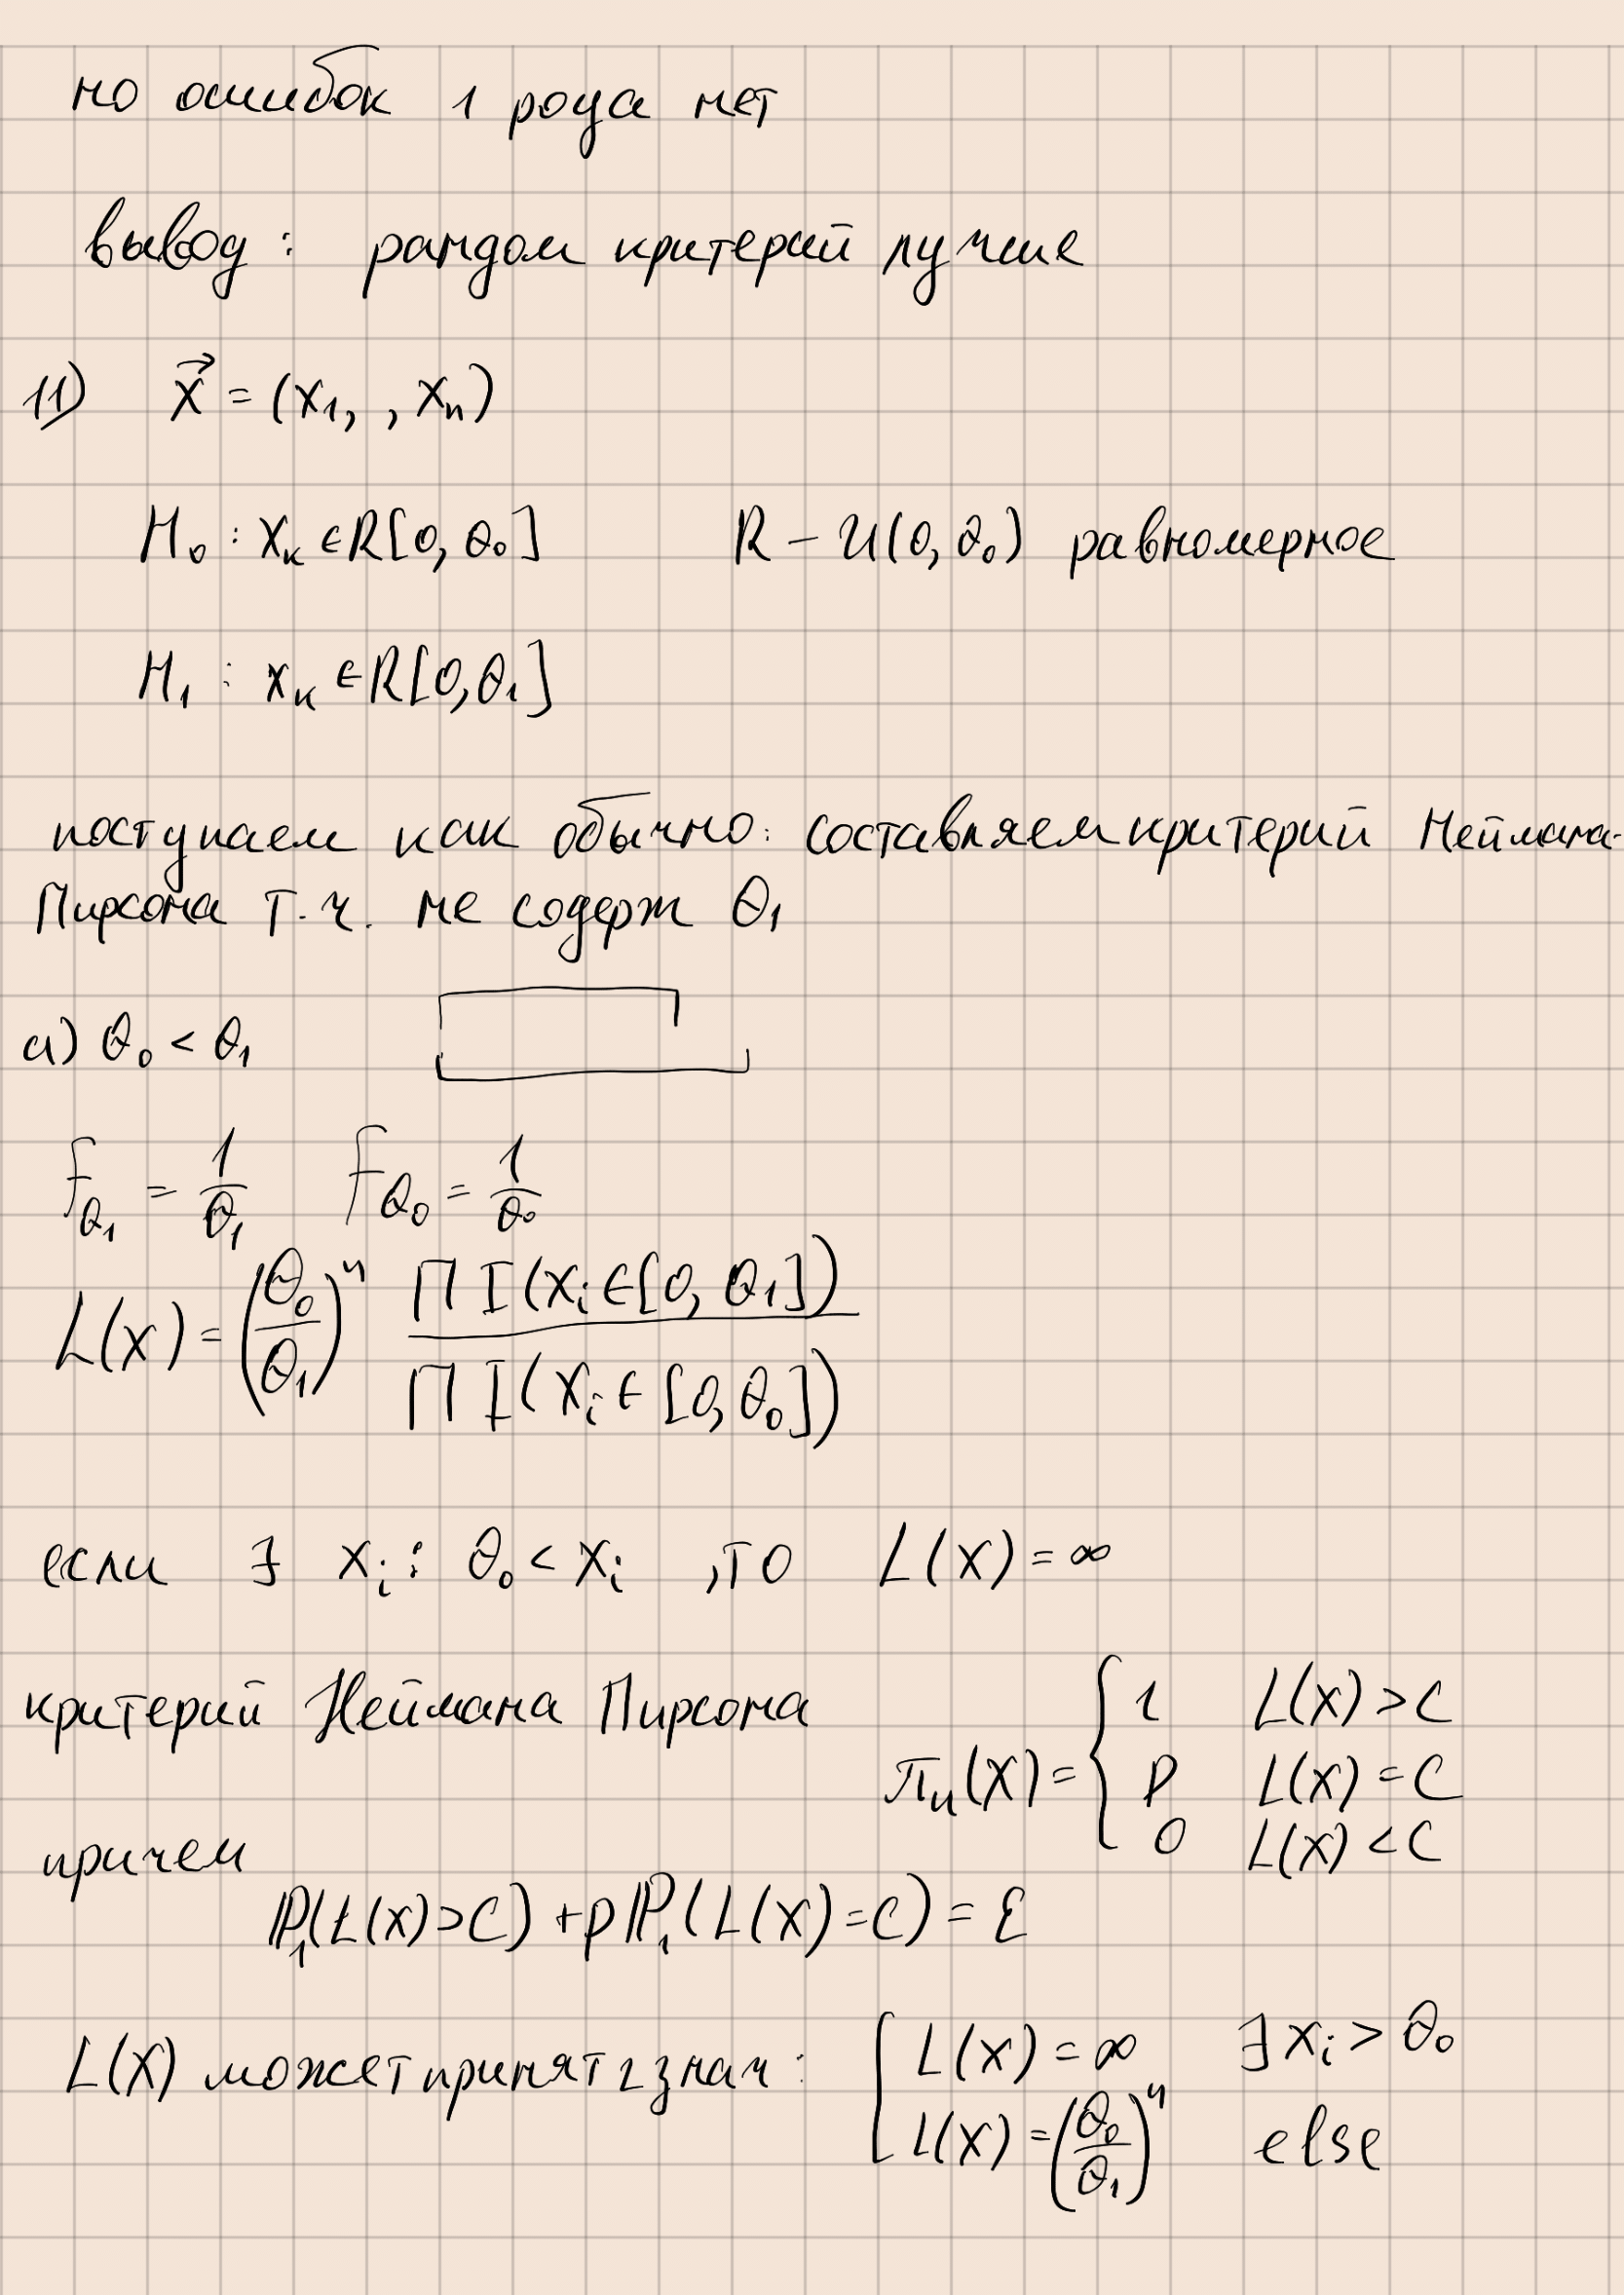 но ошибок 1 рода нет
вывод: рандом критерий лучше
11) X⃗ = (x₁, , xₙ)
H₀ : Xₖ ∈ R[0, θ₀] R – U(0, θ₀) равномерное
H₁ : xₖ ∈ R[0, θ₁]
поступаем как обычно: составляем критерий Неймана-
Пирсона т.ч. не содерж θ₁
a) θ₀ < θ₁
f_θ₁ = 1/θ₁ f_θ₀ = 1/θ₀
L(x) = (θ₀/θ₁)ⁿ ∏ I(xᵢ ∈ [0, θ₁]) / ∏ I(xᵢ ∈ [0, θ₀])
если ∃ xᵢ : θ₀ < xᵢ , то L(x) = ∞
критерий Неймана Пирсона πₙ(X) = { 1 L(x) > C
p L(x) = C
0 L(x) < C
причем
ℙ₁(L(x) > C) + p ℙ₁(L(x) = C) = ε
L(X) может принят 2 знач: [ L(x) = ∞ ∃ xᵢ > θ₀
L(x) = (θ₀/θ₁)ⁿ else